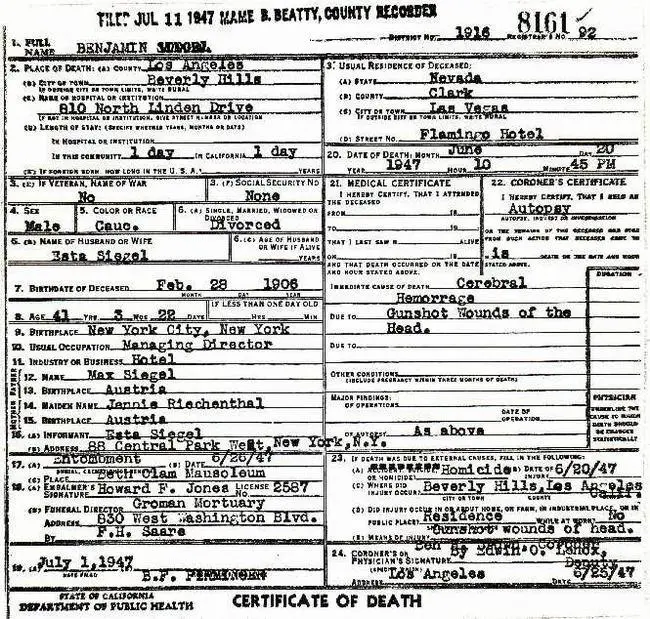 FILED JUL 11 1947 MAME B. BEATTY, COUNTY RECORDER
8161
DISTRICT NO. 1916 REGISTRAR'S NO. 92
1. FULL NAME BENJAMIN
2. PLACE OF DEATH: (A) COUNTY Los Angeles
(B) CITY OR TOWN Beverly Hills
IF OUTSIDE CITY OR TOWN LIMITS, WRITE RURAL
(C) NAME OF HOSPITAL OR INSTITUTION:
810 North Linden Drive
IF NOT IN HOSPITAL OR INSTITUTION, GIVE STREET NUMBER OR LOCATION
(D) LENGTH OF STAY: (SPECIFY WHETHER YEARS, MONTHS OR DAYS)
IN HOSPITAL OR INSTITUTION
IN THIS COMMUNITY 1 day IN CALIFORNIA 1 day
(E) IF FOREIGN BORN, HOW LONG IN THE U.S.A.? YEARS
3. USUAL RESIDENCE OF DECEASED:
(A) STATE Nevada
(B) COUNTY Clark
(C) CITY OR TOWN Las Vegas
IF OUTSIDE CITY OR TOWN LIMITS, WRITE RURAL
(D) STREET NO. Flamingo Hotel
20. DATE OF DEATH: MONTH June DAY 20
1947 HOUR 10 MINUTE 45 PM
3. (E) IF VETERAN, NAME OF WAR
No
3. (F) SOCIAL SECURITY NO
None
4. SEX
Male
5. COLOR OR RACE
Cauc.
6. (A) SINGLE, MARRIED, WIDOWED OR DIVORCED
Divorced
6. (B) NAME OF HUSBAND OR WIFE
Esta Siegel
6. (C) AGE OF HUSBAND OR WIFE IF ALIVE
YEARS
7. BIRTHDATE OF DECEASED Feb. 28 1906
MONTH DAY YEAR
8. AGE 41 YRS 3 MOS 22 DAYS
IF LESS THAN ONE DAY OLD
HRS MIN
9. BIRTHPLACE New York City, New York
10. USUAL OCCUPATION Managing Director
11. INDUSTRY OR BUSINESS Hotel
FATHER
12. NAME Max Siegel
13. BIRTHPLACE Austria
MOTHER
14. MAIDEN NAME Jennie Riechenthal
15. BIRTHPLACE Austria
16. (A) INFORMANT Esta Siegel
(B) ADDRESS 88 Central Park West, New York, N.Y.
17. (A) Entombment (B) DATE 6/26/47
(C) PLACE Beth Olam Mausoleum
18. (A) EMBALMER'S SIGNATURE Howard F. Jones LICENSE NO 2587
(B) FUNERAL DIRECTOR Groman Mortuary
ADDRESS 830 West Washington Blvd.
BY F.H. Saare
19. (A) July 1, 1947
DATE FILED
21. MEDICAL CERTIFICATE
I HEREBY CERTIFY, THAT I ATTENDED THE DECEASED
FROM 19
TO 19
THAT I LAST SAW H ALIVE
ON 19
AND THAT DEATH OCCURRED ON THE DATE AND HOUR STATED ABOVE.
22. CORONER'S CERTIFICATE
I HEREBY CERTIFY, THAT I HELD AN
Autopsy
AUTOPSY, INQUEST OR INVESTIGATION
is DEATH ON THE DATE AND HOUR STATED ABOVE.
DURATION
IMMEDIATE CAUSE OF DEATH Cerebral
Hemorrage
DUE TO Gunshot Wounds of the
Head.
DUE TO
OTHER CONDITIONS
(INCLUDE PREGNANCY WITHIN THREE MONTHS OF DEATH)
MAJOR FINDINGS:
OF OPERATIONS
DATE OF OPERATION
OF AUTOPSY As above
PHYSICIAN
UNDERLINE THE CAUSE TO WHICH DEATH SHOULD BE CHARGED STATISTICALLY
23. IF DEATH WAS DUE TO EXTERNAL CAUSES, FILL IN THE FOLLOWING:
(A) OR HOMICIDE? Homicide (B) DATE OF INJURY 6/20/47
(C) WHERE DID INJURY OCCUR? Beverly Hills, Los Angeles Calif.
CITY OR TOWN COUNTY
(D) DID INJURY OCCUR IN OR ABOUT HOME, OR FARM, IN INDUSTRIAL PLACE, OR IN PUBLIC PLACE? Residence WHILE AT WORK? No
(E) MEANS OF INJURY Gunshot wounds of head.
24. CORONER'S OR PHYSICIAN'S SIGNATURE By Edwin O. Lenox, Deputy
ADDRESS Los Angeles DATE 6/25/47
STATE OF CALIFORNIA
DEPARTMENT OF PUBLIC HEALTH
CERTIFICATE OF DEATH